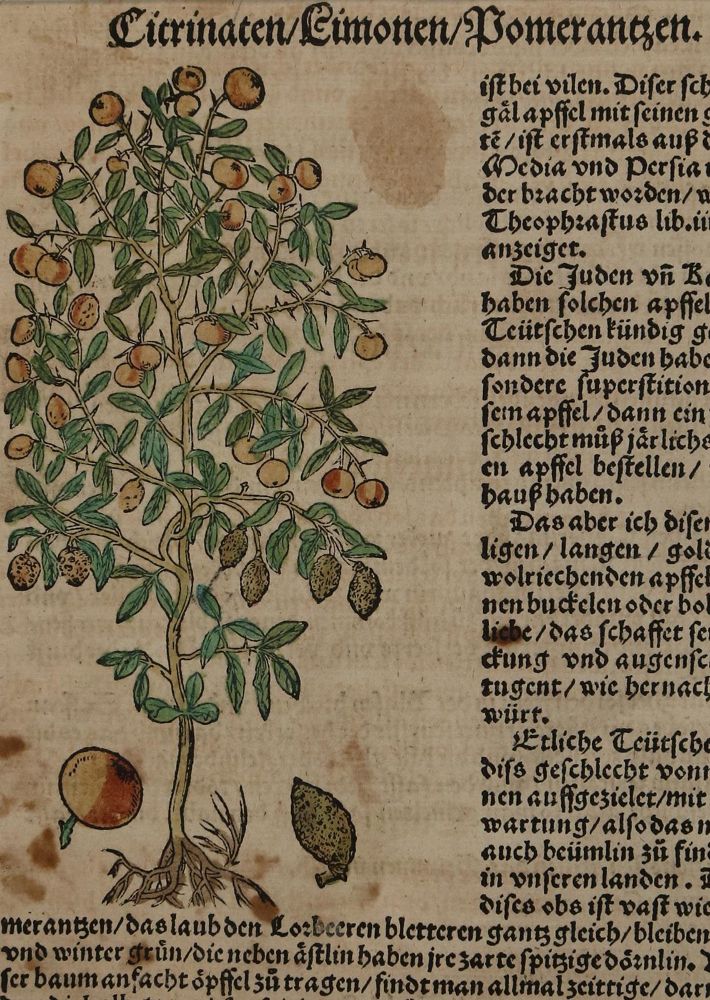 Citrinaten/Limonen/Pomerantzen.
ist bei vilen. Diser
gäl apffel mit seinen
tẽ/ist erstmals auß
Media vnd Persia
der bracht worden/
Theophrastus lib.
anzeiget.
Die Juden vñ
haben solchen apffel
Teütschen kündig
dann die Juden habe
sondere superstition
sem apffel/dann ein
schlecht müß järlichs
en apffel bestellen/
hauß haben.
Das aber ich diser
ligen/langen/gold
wolriechenden apffel
nen buckelen oder
liebe/das schaffet
ckung vnd augensc
tugent/wie hernach
würt.
Etliche Teütsche
diss geschlecht vonn
nen auffgezielet/mit
wartung/also das
auch beümlin zů find
in vnseren landen.
dises obs ist vast wie
merantzen/das laub den Lorbeeren bletteren gantz gleich/bleiben
vnd winter grün/die neben ästlin haben jre zarte spitzige dörnlin.
ser baum anfacht öpffel zů tragen/findt man allmal zeittige/